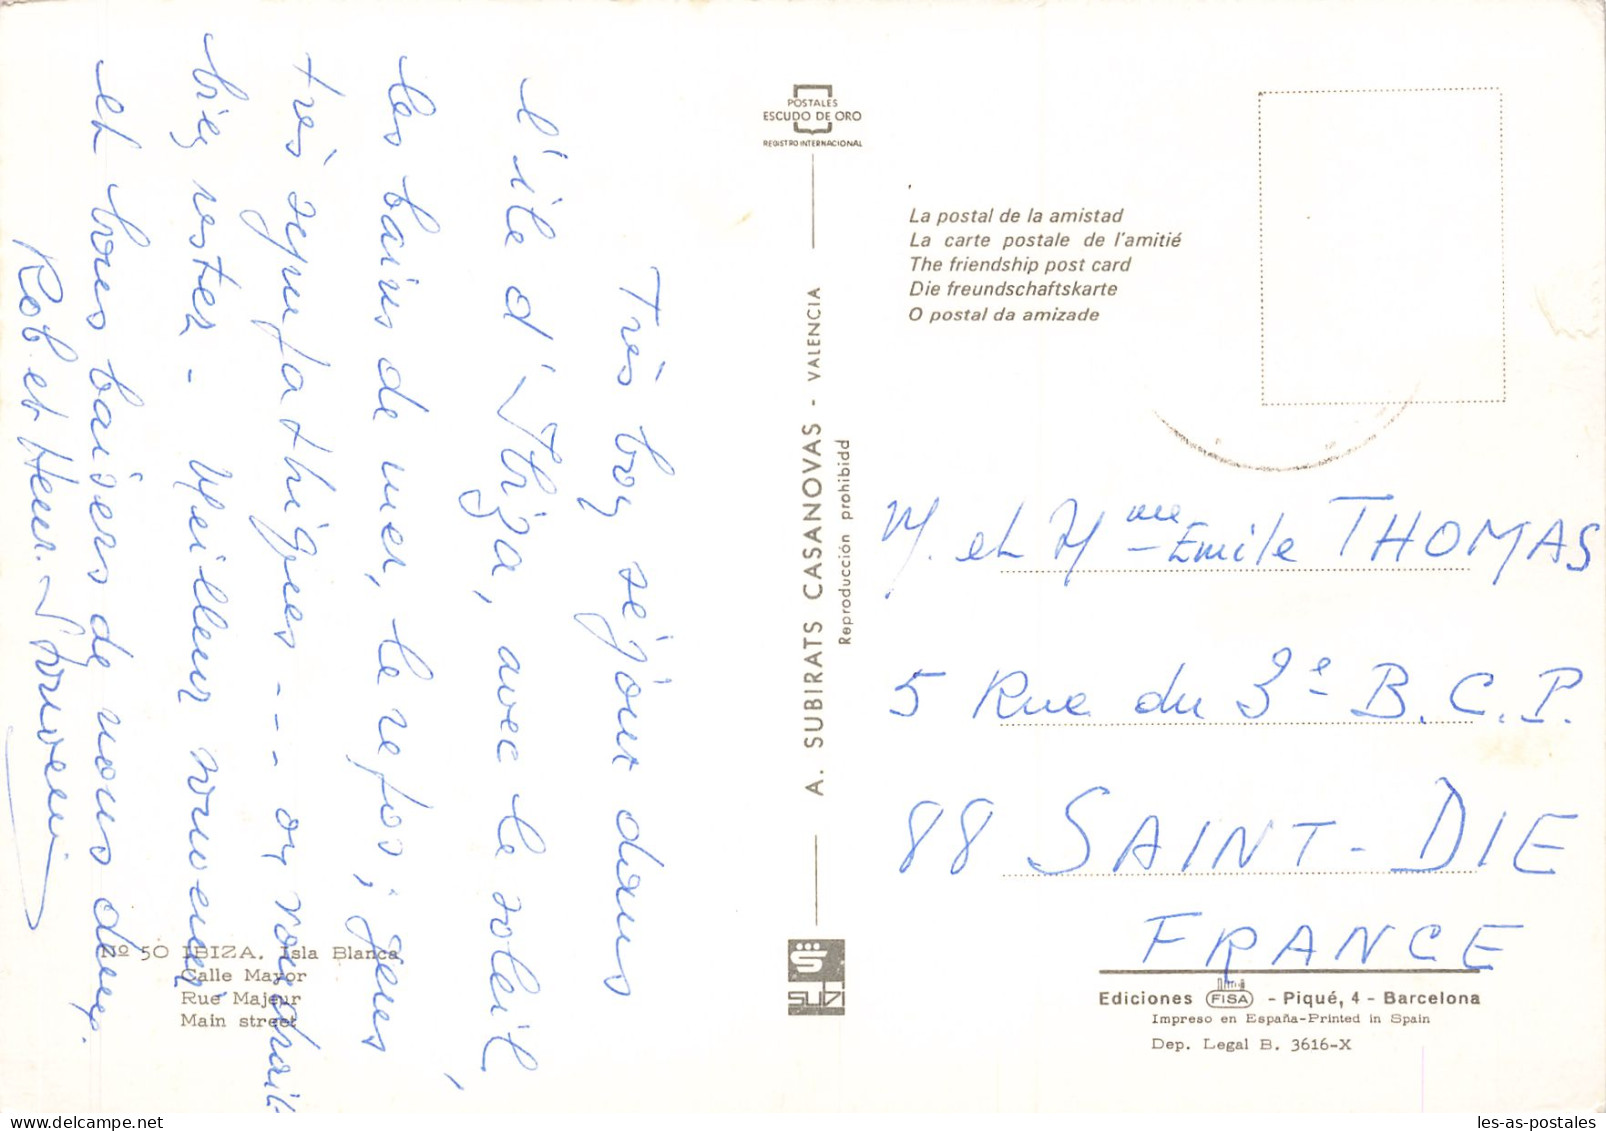 Très bon séjour dans
l'île d'Ibiza, avec le soleil,
les bains de mer, le repos ; gens
très sympathiques --- on voudrait
bien rester - Meilleur souvenir
et bons baisers de nous deux.
Rob et
POSTALES
ESCUDO DE ORO
REGISTRO INTERNACIONAL
A. SUBIRATS CASANOVAS - VALENCIA
Reproducción prohibidd
SUBI
La postal de la amistad
La carte postale de l'amitié
The friendship post card
Die freundschaftskarte
O postal da amizade
M. et Mme Emile THOMAS
5 Rue du 3e B.C.P.
88 SAINT-DIE
FRANCE
Nº 50 IBIZA. Isla Blanca
Calle Mayor
Rue Majeur
Main street
Ediciones FISA - Piqué, 4 - Barcelona
Impreso en España-Printed in Spain
Dep. Legal B. 3616-X
les-as-postales